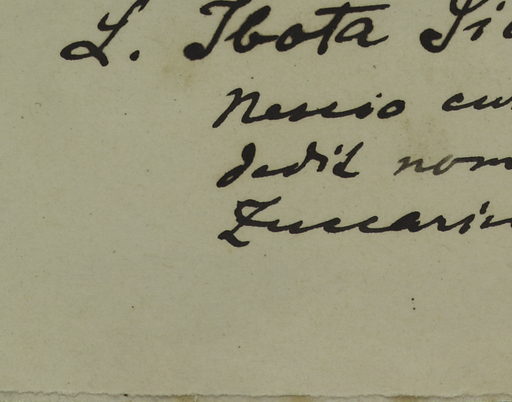 L. Ibota Si
Nescio cur
dedit nom
Zuccarin